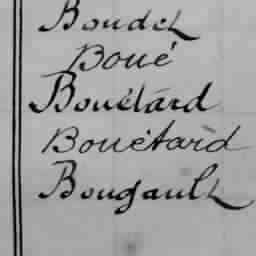 Boudet
Boué
Bouëtard
Bouétard
Bougault